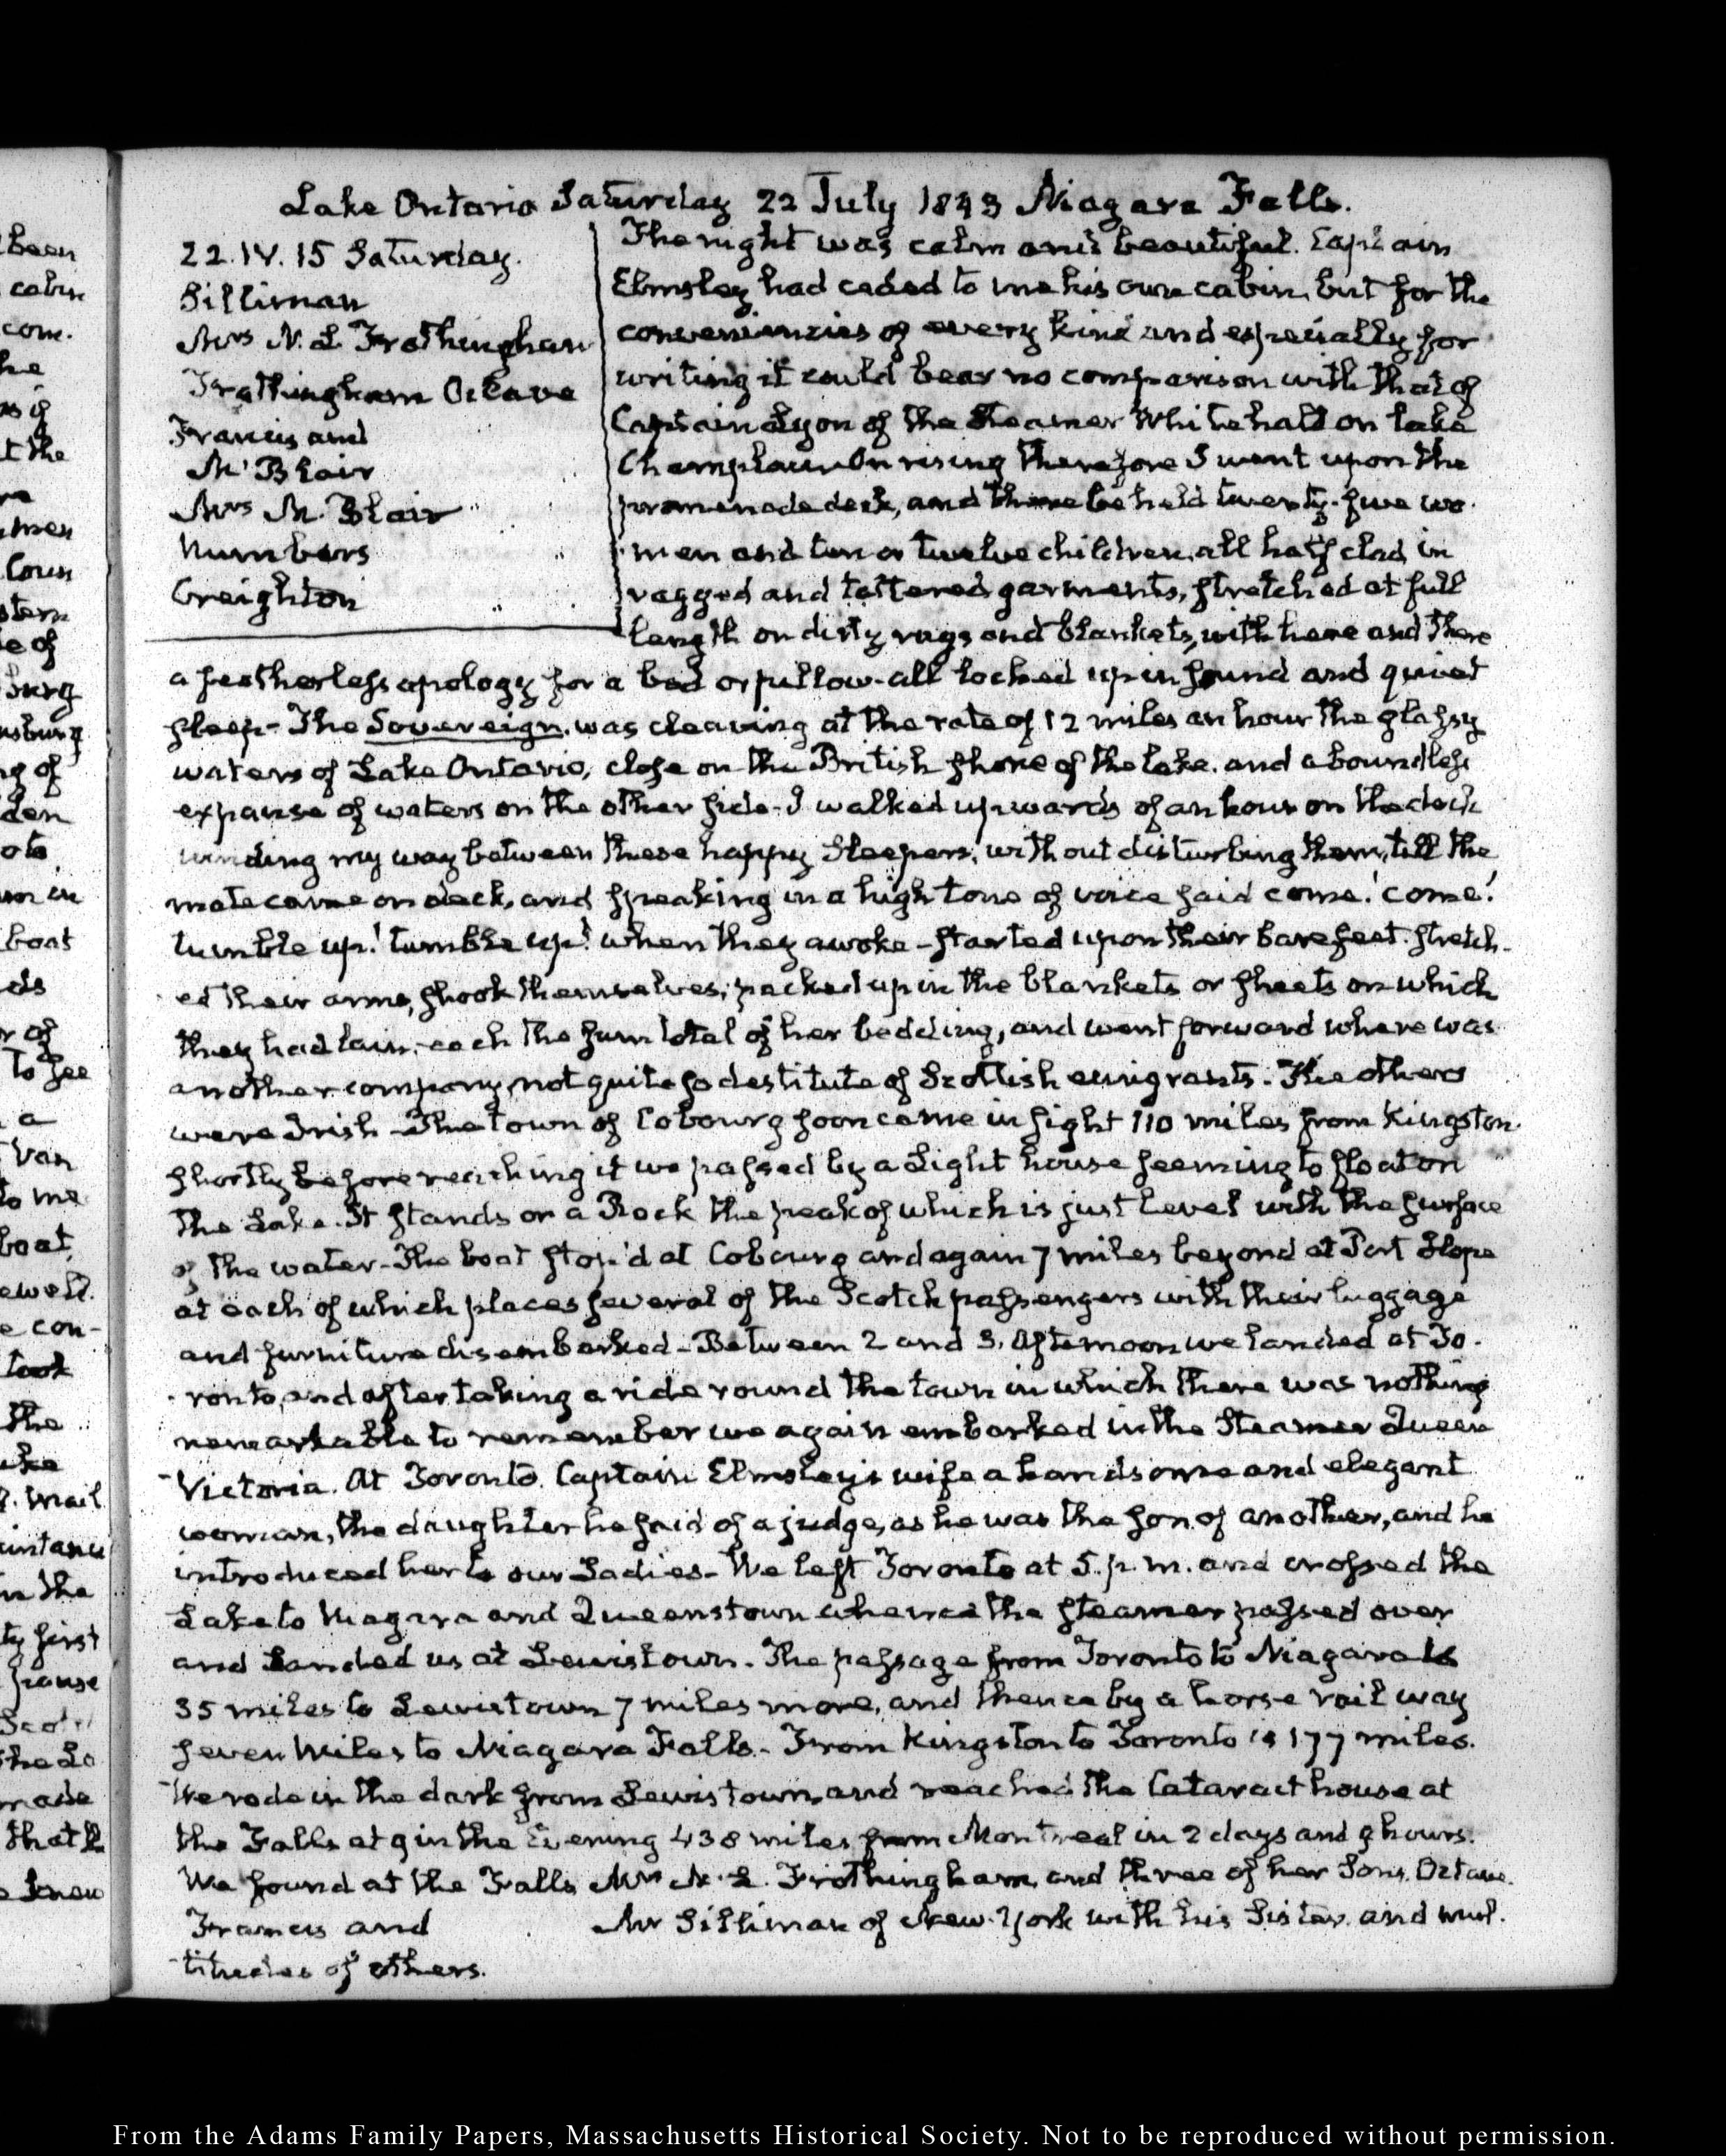 Lake Ontario Saturday 22 July 1843 Niagara Falls.
22. IV. 15 Saturday.
Silliman
Mrs N. L Frothingham
Frothingham Octave
Francis and
Mr Blair
Mrs M. Blair
Numbers
Creighton
The night was calm and beautiful. Captain
Elmsley had ceded to me his own cabin, but for the
conveniencies of every kind and especially for
writing it could bear no comparison with that of
Captain Lyon of the Steamer Whitehall on lake
Champlain. On rising therefore I went upon the
promenade deck, and there beheld twenty-five wo-
men and ten or twelve children, all half clad, in
ragged and tattered garments, stretched at full
length on dirty rugs and blankets, with here and there
a featherless apology for a bed or pillow - all locked up in sound and quiet
sleep - The Sovereign, was cleaving at the rate of 12 miles an hour the glassy
waters of Lake Ontario, close on the British shore of the lake, and a boundless
expanse of waters on the other side - I walked upwards of an hour on the deck
winding my way between these happy Sleepers, without disturbing them, till the
mate came on deck, and speaking in a high tone of voice said come! come!
tumble up! tumble up! when they awoke - started upon their bare feet. stretch-
ed their arms, shook themselves, packed up in the blankets or sheets on which
they had lain, each the sum total of her bedding, and went forward where was
another company, not quite so destitute of Scottish emigrants. The others
were Irish - The town of Cobourg soon came in sight 110 miles from Kingston.
shortly before reaching it we passed by a Light house seeming to float on
the Lake. It stands on a Rock the peak of which is just level with the surface
of the water - The boat stop'd at Cobourg and again 7 miles beyond at Port Hope
at each of which places several of the Scotch passengers with their luggage
and furniture disembarked - Between 2 and 3. Afternoon we landed at To-
ronto, and after taking a ride round the town in which there was nothing
remarkable to remember we again embarked in the Steamer Queen
Victoria. At Toronto. Captain Elmsley's wife a handsome and elegant
woman, the daughter he said of a judge, as he was the son of another, and he
introduced her to our Ladies - We left Toronto at 5. p. m. and crossed the
Lake to Niagara and Queenstown whence the steamer passed over
and Landed us at Lewistown. The passage from Toronto to Niagara is
35 miles to Lewistown 7 miles more, and thence by a horse rail way
seven Miles to Niagara Falls - From Kingston to Toronto is 177 miles.
We rode in the dark from Lewistown, and reached the Cataract house at
the Falls at 9 in the Evening 438 miles from Montreal in 2 days and 9 hours.
We found at the Falls Mrs N. L. Frothingham, and three of her Sons, Octave.
Francis and Mr Silliman of New-York with his Sister, and mul-
titudes of others.
From the Adams Family Papers, Massachusetts Historical Society. Not to be reproduced without permission.